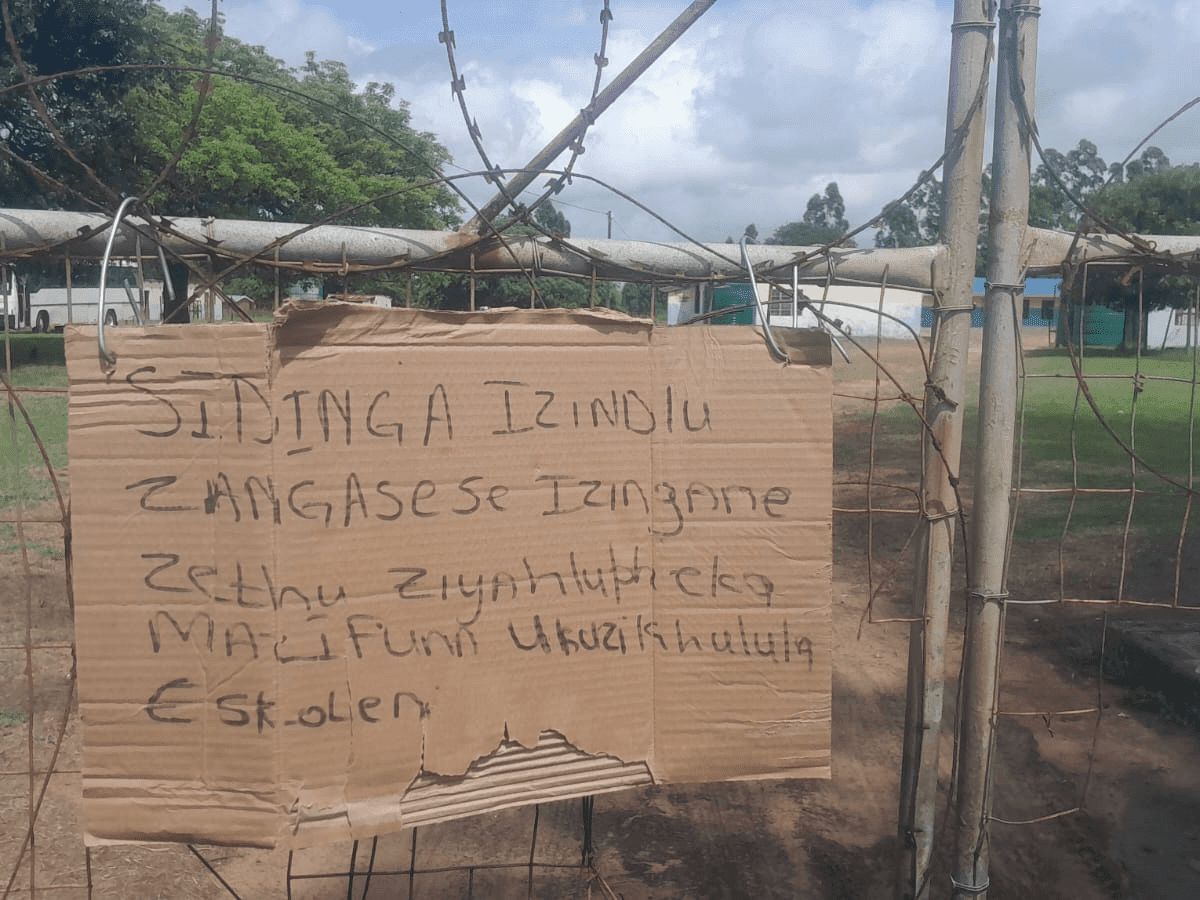 SIDINGA IZINDlu
ZANGASeSe IZINgAne
Zethu ZIyAhlupheka
MAZiFunA UkuziKhulula
ESkolen